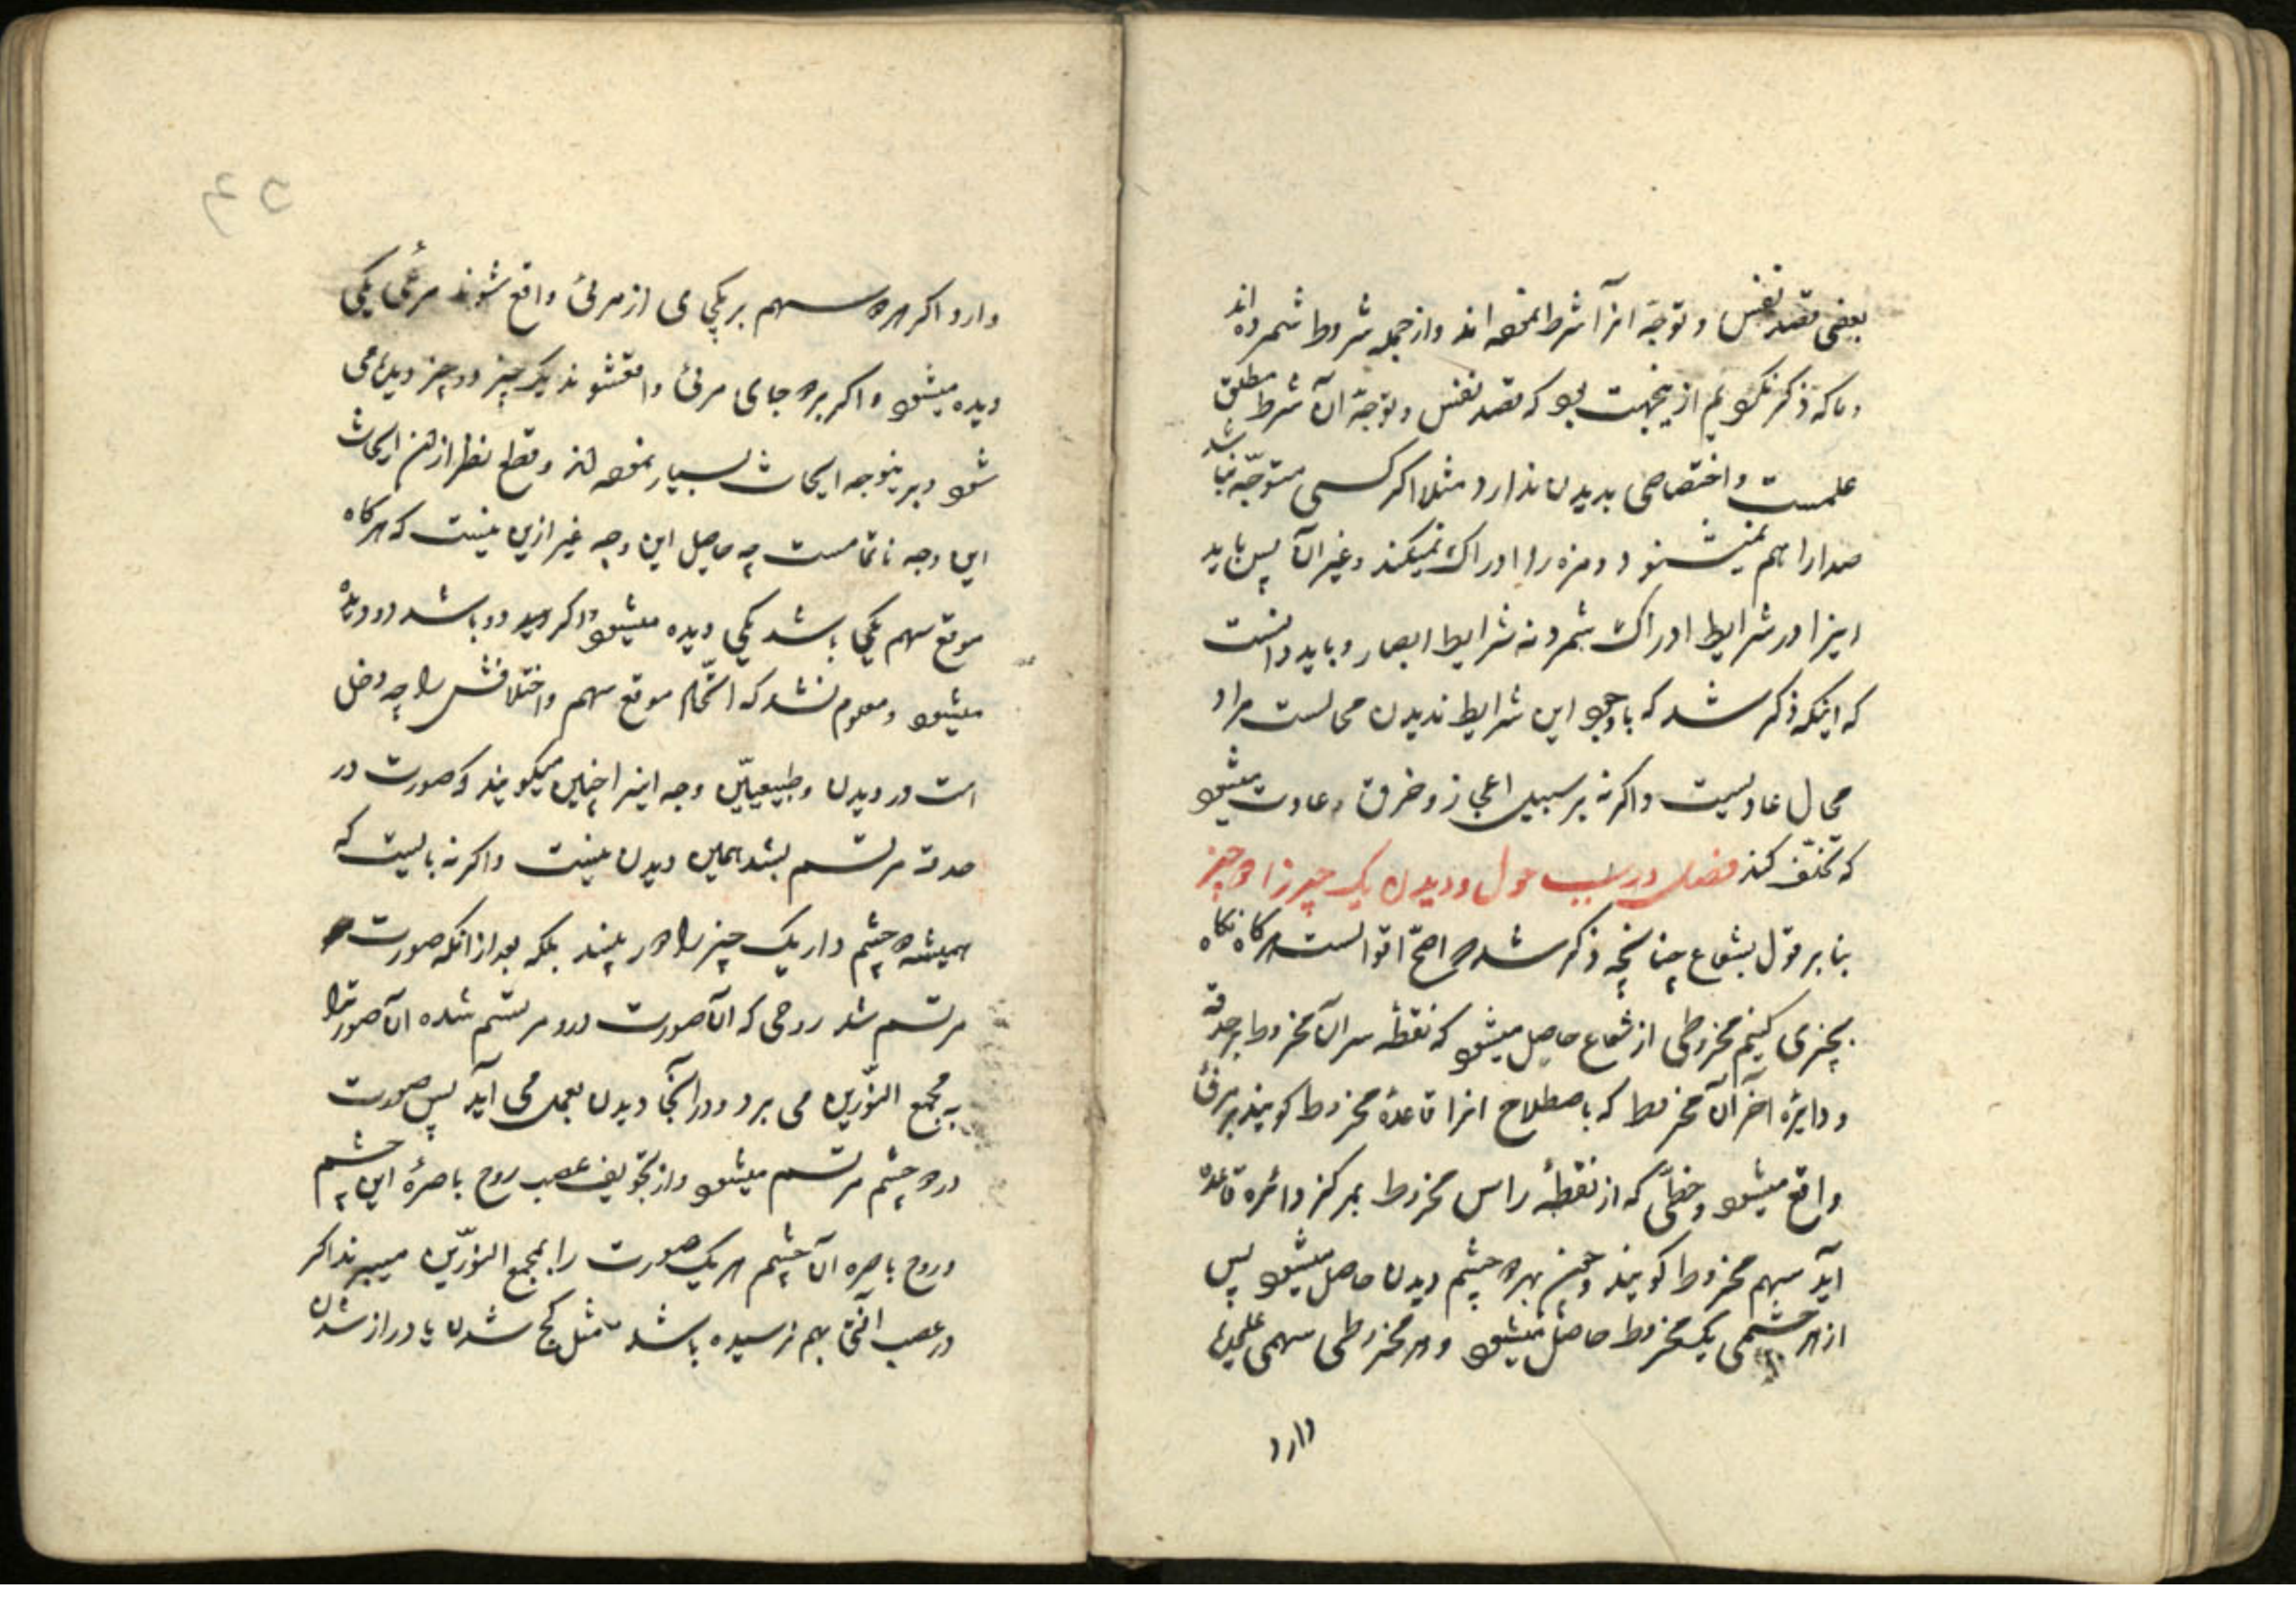 بعضی قصد نفس و توجه انرا شرط نموده اند و از جمله شروط شمرده اند
و ما که ذکر نکردیم ازینجهت بود که قصد نفس و توجه آن شرط مطلق
علمست و اختصاصی بدیدن ندارد مثلا اکر کسی متوجه نباشد
صدا را هم نمیشنود و مزه را ادراک نمیکند و غیر آن پس باید
اینرا در شرایط ادراک شمرد نه شرایط ابصار و باید دانست
که اینکه ذکر شد که با وجود این شرایط ندیدن محالست مراد
محال عادیست و اکر نه بر سبیل اعجاز و خرق عادت میشود
که تخلف کند فصل در سبب حول و دیدن یک چیز را دو چیز
بنا بر قول بشعاع چنانچه ذکر شد و اصح اقوالست هرکاه نکاه
بچیزی کنیم مخروطی از شعاع حاصل میشود که نقطه سر آن مخروط بر حدقه
و دایره آخر آن مخروط که باصطلاح انرا قاعدهٔ مخروط کویند بر مرئی
واقع میشود و خطی که از نقطهٔ راس مخروط بمرکز دائره قاعده
آید سهم مخروط کویند و چون بهر دو چشم دیدن حاصل میشود پس
از هر چشمی یک مخروط حاصل میشود و هر مخروطی سهمی علیحده
دارد
دارد و اکر هر دو سهم بر یکجای از مرئی واقع شوند مرئی یکی
دیده میشود و اکر بر دو جای مرئی واقعشوند یک چیز دو چیز دیده می
شود و بر ینوجه ابحاث بسیار نموده اند و قطع نظر از آن ابحاث
این وجه ناتمامست چه حاصل این وجه غیر ازین نیست که هرکاه
موقع سهم یکی باشد یکی دیده میشود و اکر دو باشد دو دیده
میشود و معلوم نشد که اتحاد موقع سهم و اختلافش را چه دخل
است در دیدن و طبیعیین وجه اینرا چنین میکویند که صورت در
حدقه مرتسم بشد همین دیدن نیست و اکر نه بایست که
همیشه دو چشم دار یک چیز را دو بیند بلکه بعد از انکه صورت
مرتسم شد روحی که آن صورت درو مرتسم شده آن صورت را
به مجمع النورین می برد و در آنجا دیدن بعمل می آید پس صورت
در دو چشم مرتسم میشود و از تجویف عصب روح باصرهٔ این چشم
و روح باصره آن چشم هر یک صورت را بمجمع النورین میبرند اکر
در عصب آفتی بهم نرسیده باشد مثل کج شدن یا دراز شدن